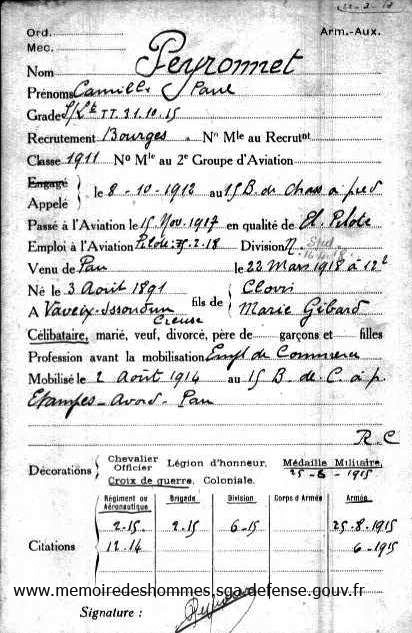 11-3-18
Ord. Arm.-Aux.
Mec.
Nom Peyronnet
Prénoms Camille Paul
Grade S/Lt TT. 31.10.15
Recrutement Bourges No Mle au Recrutnt
Classe 1911 No Mle au 2e Groupe d'Aviation
Engagé
Appelé le 8-10-1912 au 15 B. de Chass à pied
Passé à l'Aviation le 15 Nov. 1917 en qualité de El. Pilote
Emploi à l'Aviation Pilote 2-18 Division N.
Venu de Pau le 22 Mars 1918 à 12h
Né le 3 Août 1891 fils de Clovis
A Vaveix-Issoudun Creuse Marie Gibard
Célibataire, marié, veuf, divorcé, père de garçons et filles
Profession avant la mobilisation Empl de Commerce
Mobilisé le 2 Août 1914 au 15 B. de C. à p.
Etampes - Avord - Pau
R.C
Décorations Chevalier Officier Légion d'honneur. Médaille Militaire.
25-8-1915
Croix de guerre, Coloniale.
Régiment ou Aéronautique Brigade Division Corps d'Armée Armée
Citations 2-15 2-15 6-15 25-8-1915
12-14 6-1915
www.memoiredeshommes.sga.defense.gouv.fr
Signature :